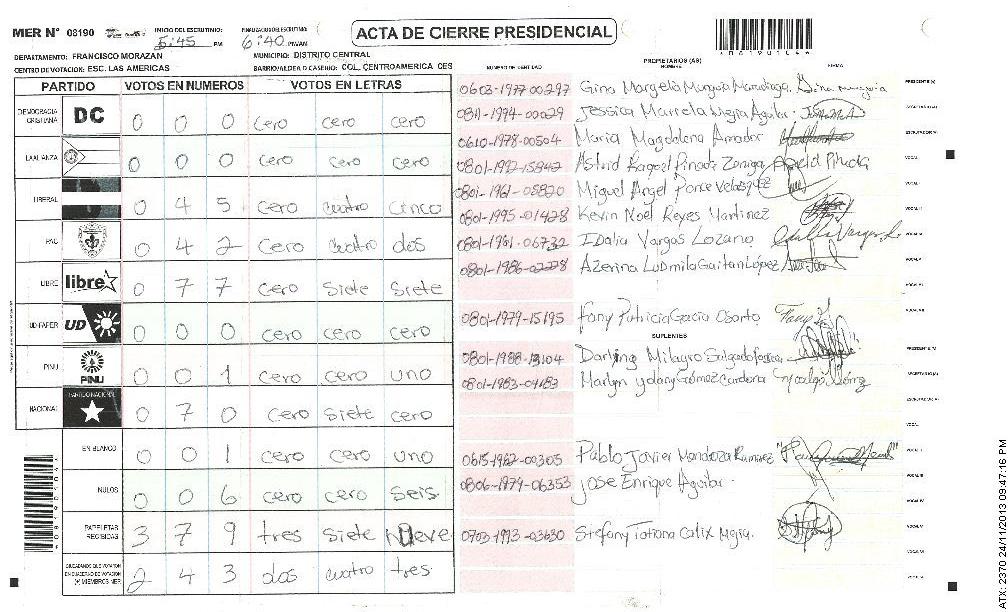 MER N° 08190 INICIO DEL ESCRUTINIO: 5:45 PM FINALIZACION DEL ESCRUTINIO: 6:40 PM/AM
ACTA DE CIERRE PRESIDENCIAL
DEPARTAMENTO: FRANCISCO MORAZAN MUNICIPIO: DISTRITO CENTRAL
CENTRO DE VOTACION: ESC. LAS AMERICAS BARRIO/ALDEA O CASERIO: COL. CENTROAMERICA CES
PARTIDO VOTOS EN NUMEROS VOTOS EN LETRAS
DEMOCRACIA CRISTIANA DC 0 0 0 cero cero cero
LA ALIANZA 0 0 0 cero cero cero
LIBERAL 0 4 5 cero cuatro cinco
PAC 0 4 2 cero cuatro dos
LIBRE libre 0 7 7 cero siete siete
UD-FAPER UD 0 0 0 cero cero cero
PINU PINU 0 0 1 cero cero uno
NACIONAL PARTIDO NACIONAL 0 7 0 cero siete cero
EN BLANCO 0 0 1 cero cero uno
NULOS 0 0 6 cero cero seis
PAPELETAS RECIBIDAS 3 7 9 tres siete nueve
CIUDADANOS QUE VOTARON EN CUADERNO DE VOTACION (+) MIEMBROS MER 2 4 3 dos cuatro tres
NUMERO DE IDENTIDAD PROPIETARIOS (AS) NOMBRE FIRMA
0603-1977-00297 Gino Margela Murguia
0811-1994-00029 Jessica Marcela Mejia Aguilar
0610-1978-00504 Maria Magdalena Amador
0801-1992-15842 Astrid Raquel Pineda Zuniga
0801-1961-05820 Miguel Angel Ponce Velasquez
0801-1995-01428 Kevin Noel Reyes Martinez
0801-1961-06732 Idalia Vargas Lozano
0801-1986-02228 Azerina Ludmila Gaitan López
0801-1979-15195 Fany Patricia Gracia Osorto
SUPLENTES
0801-1988-13104 Darling Milagro Salgado
0801-1983-04183 Marlyn Yolany Gómez Cardona
0615-1962-00305 Pablo Javier Mendoza Ramirez
0806-1979-06353 Jose Enrique Aguilar
0703-1993-03630 Stefany Tatiana Calix Mejia
ATX: 2370 24/11/2013 09:47:16 PM